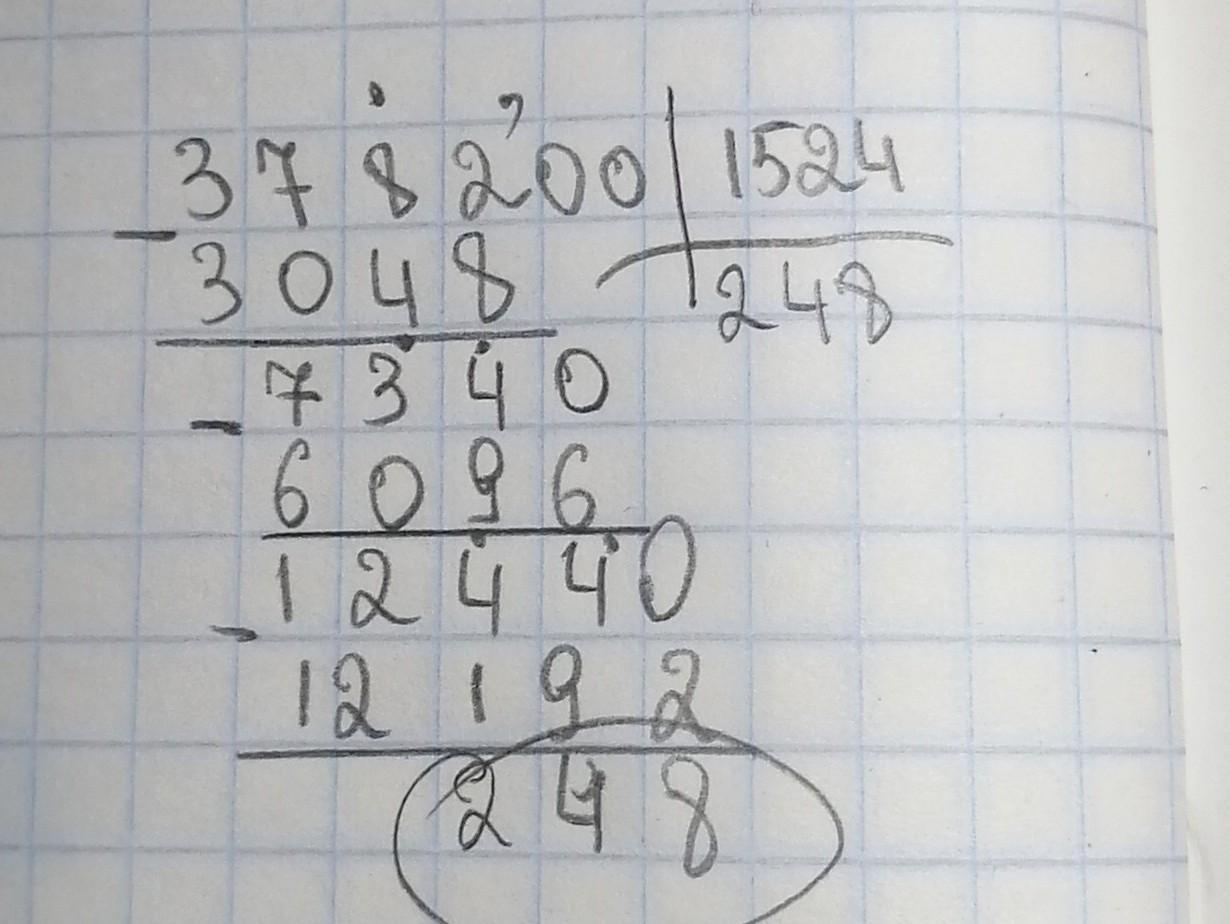 3782'00 | 1524
- 3048 248
- 7340
6096
- 12440
12192
248